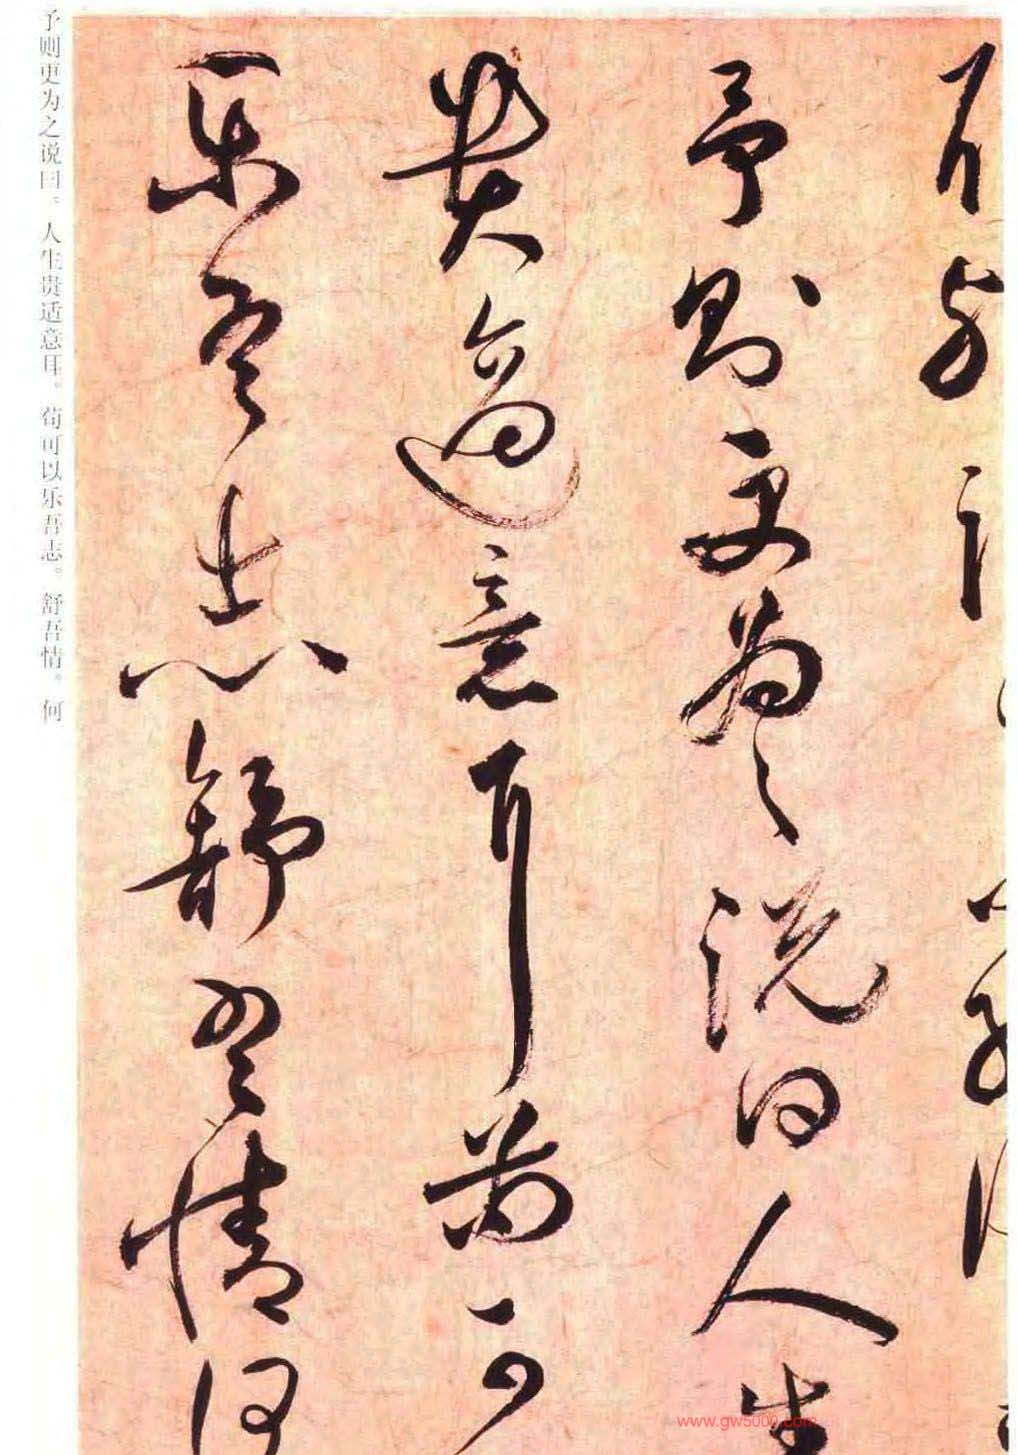 予则更为之说曰。人生贵适意耳。苟可以乐吾志。舒吾情。何
予則更為之說曰人生
貴適意耳苟可
樂吾志舒吾情何
www.gw5000.com